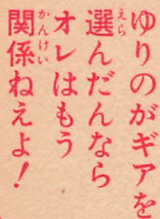 ゆりのがギアを
選んだんなら
オレはもう
関係ねえよ！